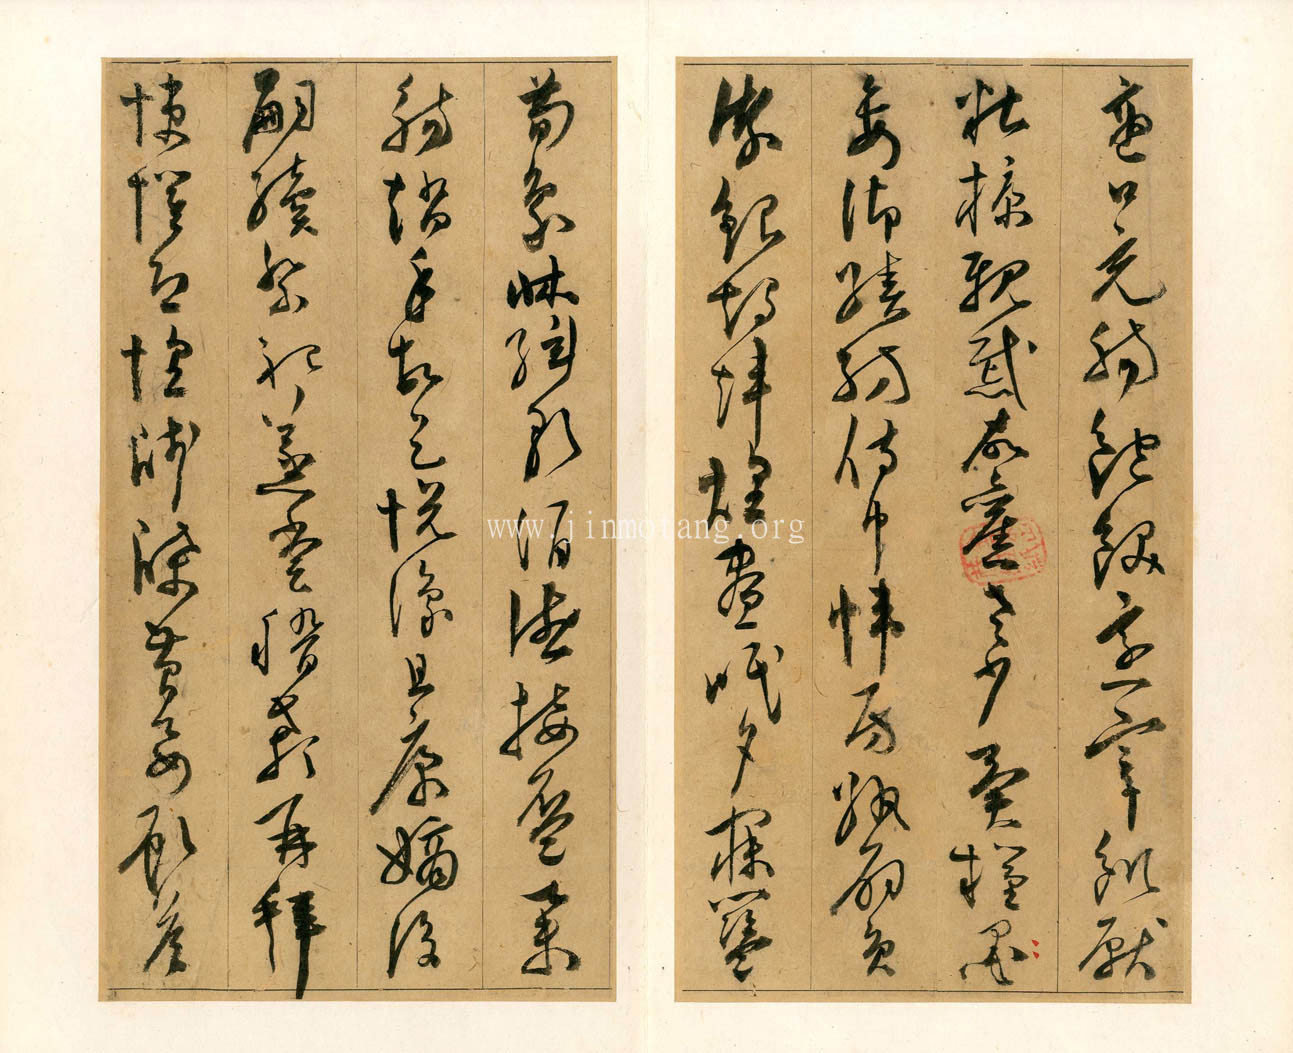 適口充腸飽飫烹宰飢厭
糟糠親戚故舊老少異糧
妾御績紡侍巾帷房紈扇員
潔銀燭煒煌晝眠夕寐籃
筍象床絃歌酒讌接杯舉
觴矯手頓足悅豫且康嫡後
嗣續祭祀蒸嘗稽顙再拜
悚懼恐惶牋牒簡要顧答
www.jinmotang.org